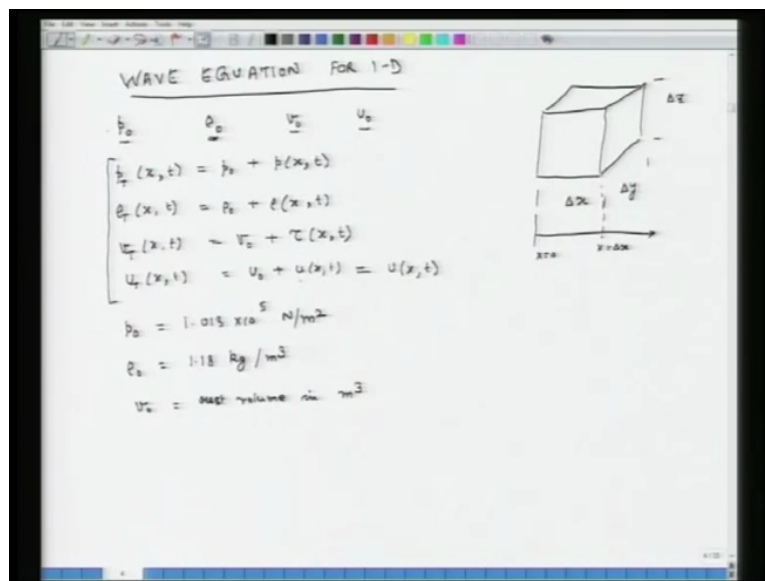 WAVE EQUATION FOR 1-D
p₀ ρ₀ v₀ u₀
p_T (x,t) = p₀ + p(x,t)
ρ_T (x,t) = ρ₀ + ρ(x,t)
v_T (x,t) = v₀ + τ(x,t)
u_T (x,t) = u₀ + u(x,t) = u(x,t)
p₀ = 1.013 x10⁵ N/m²
ρ₀ = 1.18 kg/m³
v₀ = rest volume in m³
Δz
Δx Δy
x=0 x=Δx